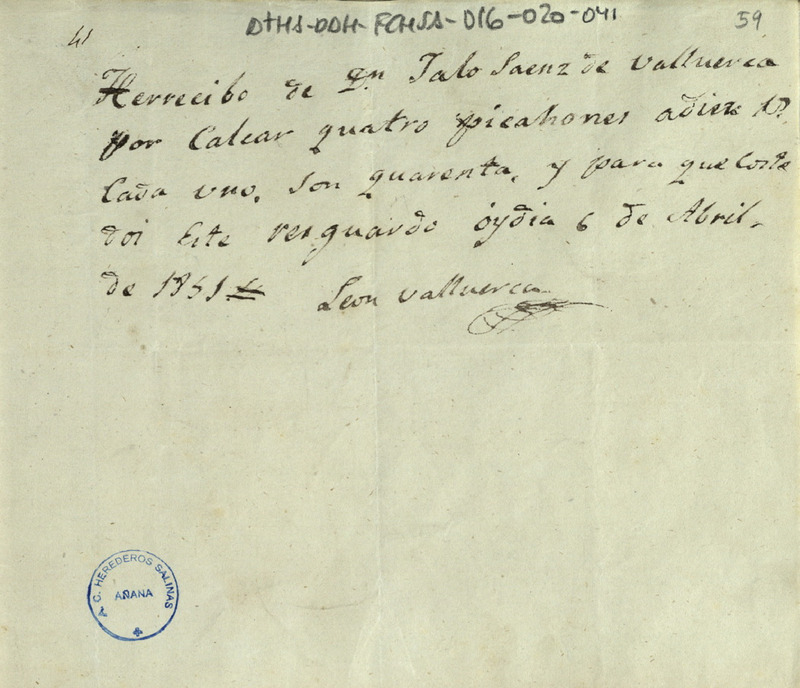 DTHS-DDH-FCHSA-016-020-041
59
41
Herrecibo de Dn Jalo Saenz de Valluerca
por Calcar quatro picahones adiez
Cada uno, son quarenta, y para que Coste
doi Este resguardo óydia 6 de Abril
de 1851
Leon Valluerca
A. C. HEREDEROS SALINAS
AÑANA